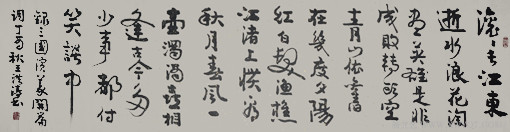 滚々长江東
逝水浪花淘
尽英雄是非
成敗转頭空
青山依舊
在幾度夕陽
紅白髮漁樵
江渚上惯看
秋月春風一
壶濁酒喜相
逢古今多
少事都付
笑談中
録三國演義開篇
词丁酉秋